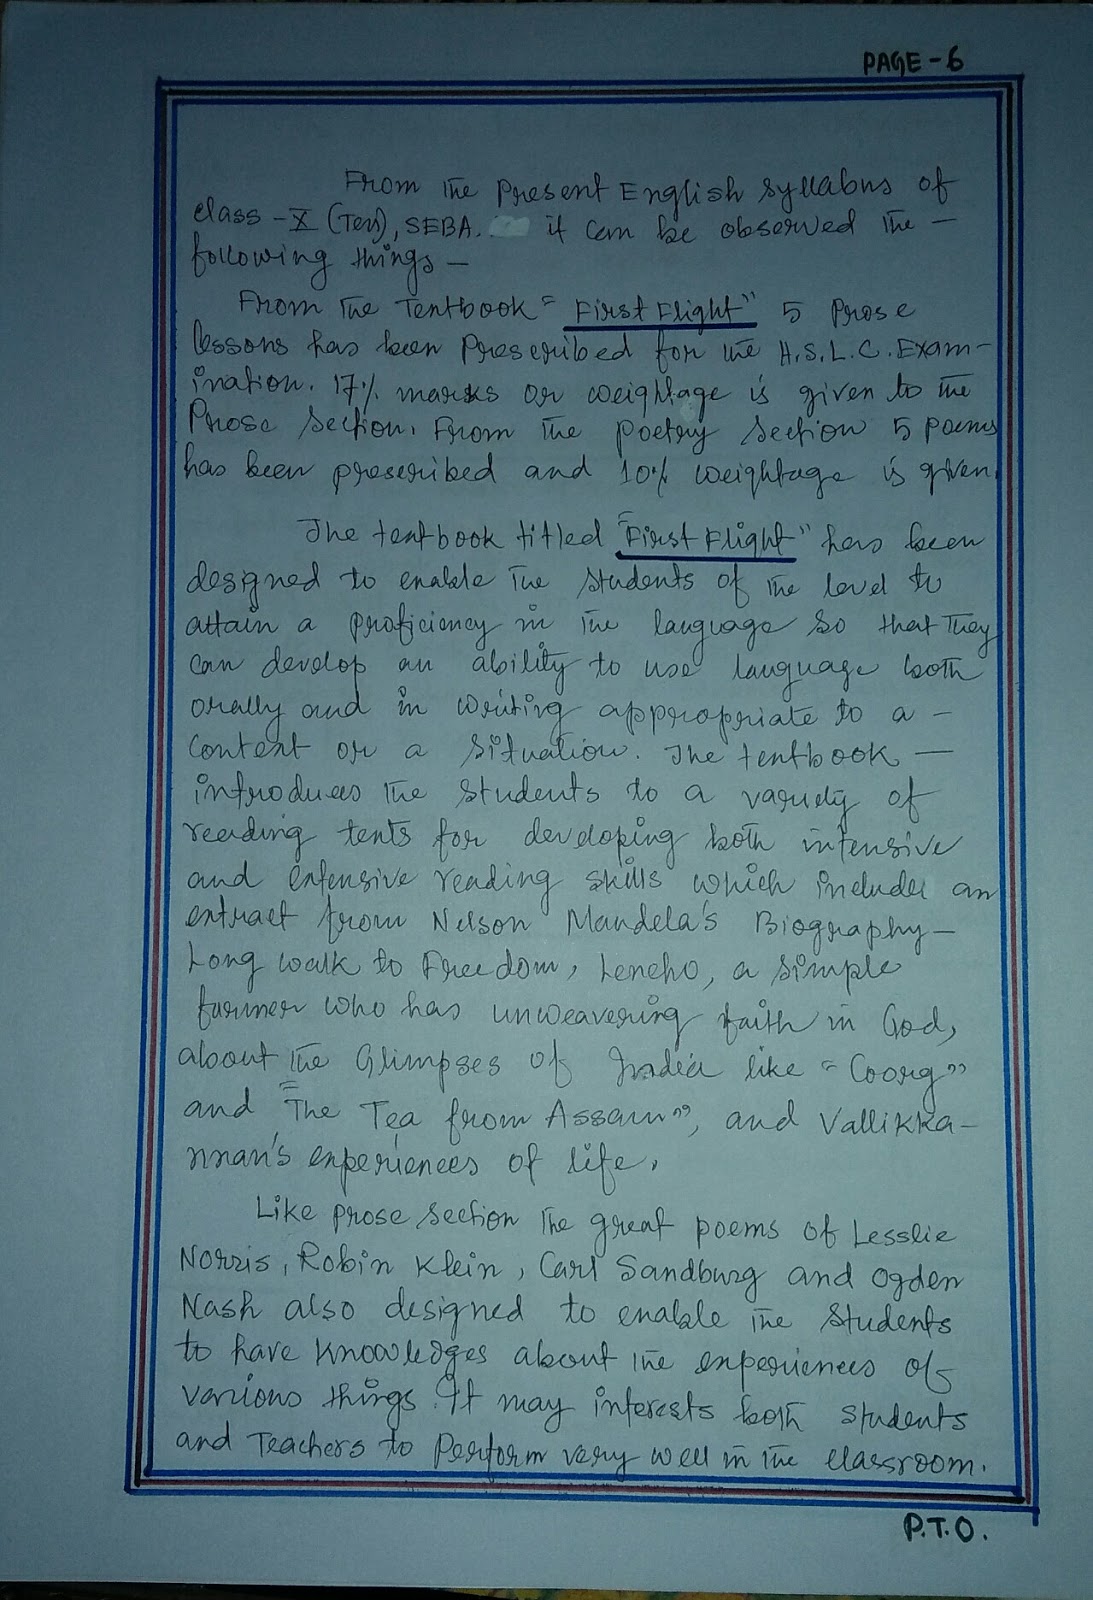 PAGE - 6
From the Present English Syllabus of
class - X (Ten), SEBA. it can be observed the -
following things -
From the Textbook "First Flight" 5 Prose
lessons has been Prescribed for the H.S.L.C. Exam-
ination. 17% marks or weightage is given to the
Prose Section. From the Poetry Section 5 Poems
has been prescribed and 10% weightage is given.
The textbook titled "First Flight" has been
designed to enable the students of the level to
attain a proficiency in the language so that They
can develop an ability to use language both
orally and in writing appropriate to a -
Context or a situation. The textbook -
introduces the students to a variety of
reading texts for developing both intensive
and extensive reading skills which includes an
extract from Nelson Mandela's Biography -
Long walk to Freedom, Lencho, a simple
farmer who has unweavering faith in God,
about the Glimpses of India like "Coorg"
and "The Tea from Assam", and Vallikka-
nnan's experiences of life.
Like Prose section the great poems of Lesslie
Norris, Robin Klein, Carl Sandburg and Ogden
Nash also designed to enable the students
to have Knowledges about the experiences of
various things. It may interests both students
and Teachers to Perform very well in the classroom.
P.T.O.